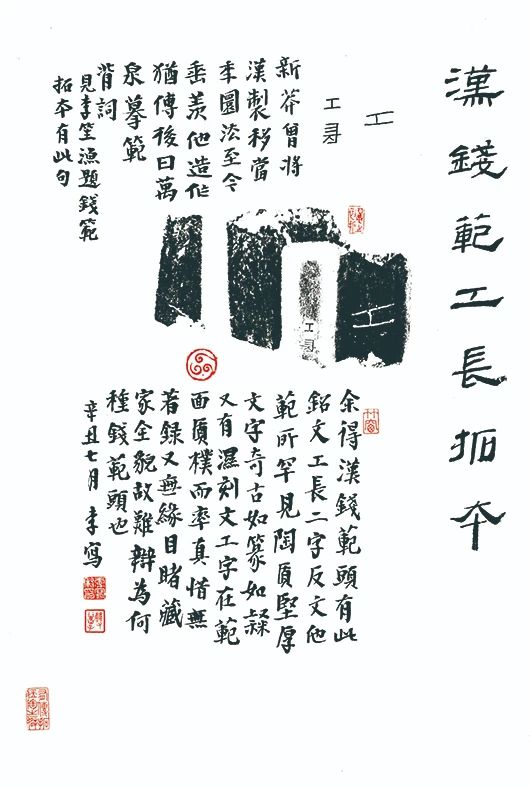 漢錢範工長拓本
工
工長
新莽曾將
漢製移當
年園法至今
垂羨他造作
猶傳後日萬
泉摹範
背詞
見李笙漁題錢範
拓本有此句
工
工長
余得漢錢範頭有此
銘文工長二字反文他
範所罕見陶質堅厚
文字奇古如篆如隸
又有濕刻文工字在範
面質樸而率真惜無
著錄又無緣目睹藏
家全貌故難辯為何
種錢範頭也
辛丑七月 李寫